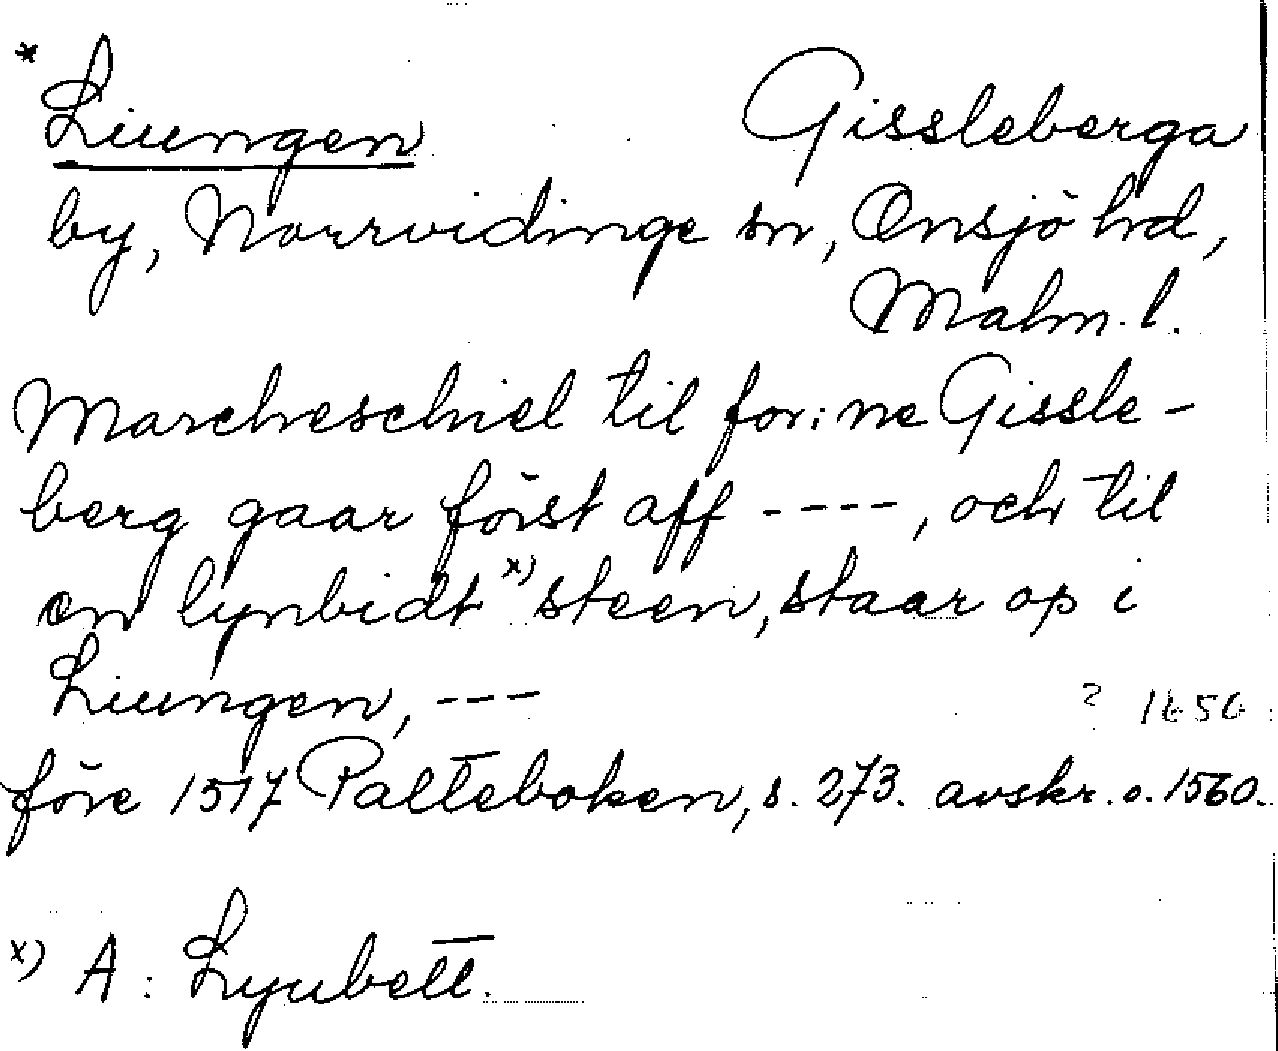 * Liungen Gissleberga
by, Norrvidinge sn, Onsjö hd,
Malm. l.
Marcheschiel til for:ne Gissle-
berg gaar först aff ----, och til
en lynbidt x) steen, staar op i
Liungen, ---
? 1656
före 1517 Palteboken, s. 273. avskr. o. 1560.
x) A: Lyubett.